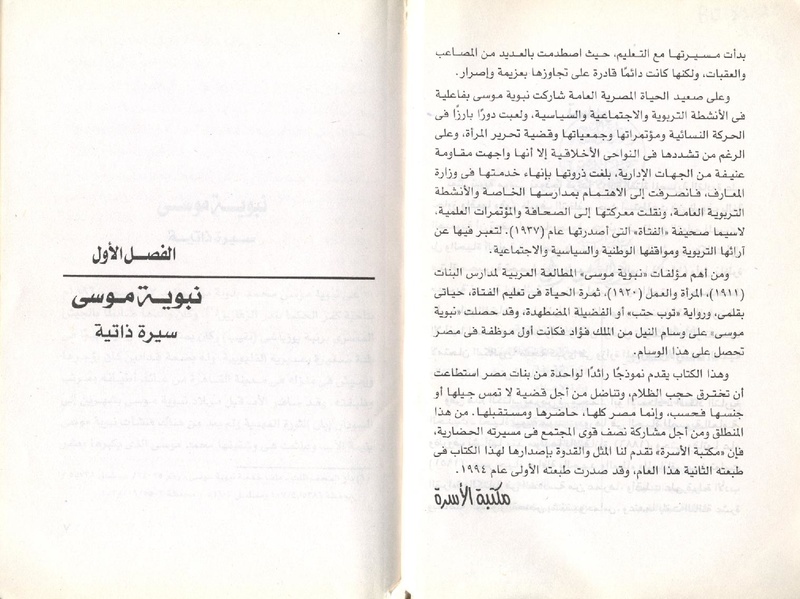 بدأت مسيرتها مع التعليم، حيث اصطدمت بالعديد من المصاعب
والعقبات، ولكنها كانت دائمًا قادرة على تجاوزها بعزيمة وإصرار.
وعلى صعيد الحياة المصرية العامة شاركت نبوية موسى بفاعلية
فى الأنشطة التربوية والاجتماعية والسياسية، ولعبت دورًا بارزًا فى
الحركة النسائية ومؤتمراتها وجمعياتها وقضية تحرير المرأة، وعلى
الرغم من تشددها فى النواحى الأخلاقية إلا أنها واجهت مقاومة
عنيفة من الجهات الإدارية، بلغت ذروتها بإنهاء خدمتها فى وزارة
المعارف، فانصرفت إلى الاهتمام بمدارسها الخاصة والأنشطة
التربوية العامة، ونقلت معركتها إلى الصحافة والمؤتمرات العلمية،
لاسيما صحيفة «الفتاة» التى أصدرتها عام (١٩٣٧). لتعبر فيها عن
آرائها التربوية ومواقفها الوطنية والسياسية والاجتماعية.
ومن أهم مؤلفات «نبوية موسى» المطالعة العربية لمدارس البنات
(١٩١١)، المرأة والعمل (١٩٢٠)، ثمرة الحياة فى تعليم الفتاة، حياتى
بقلمى، ورواية «توب حتب» أو الفضيلة المضطهدة، وقد حصلت «نبوية
موسى» على وسام النيل من الملك فؤاد فكانت أول موظفة فى مصر
تحصل على هذا الوسام.
وهذا الكتاب يقدم نموذجًا رائدًا لواحدة من بنات مصر استطاعت
أن تخترق حجب الظلام، وتناضل من أجل قضية لا تمس جيلها أو
جنسها فحسب، وإنما مصر كلها، حاضرها ومستقبلها. من هذا
المنطلق ومن أجل مشاركة نصف قوى المجتمع فى مسيرته الحضارية،
فإن «مكتبة الأسرة» تقدم لنا المثل والقدوة بإصدارها لهذا الكتاب فى
طبعته الثانية هذا العام، وقد صدرت طبعته الأولى عام ١٩٩٤.
مكتبة الأسرة
الفصل الأول
نبوية موسى
سيرة ذاتية